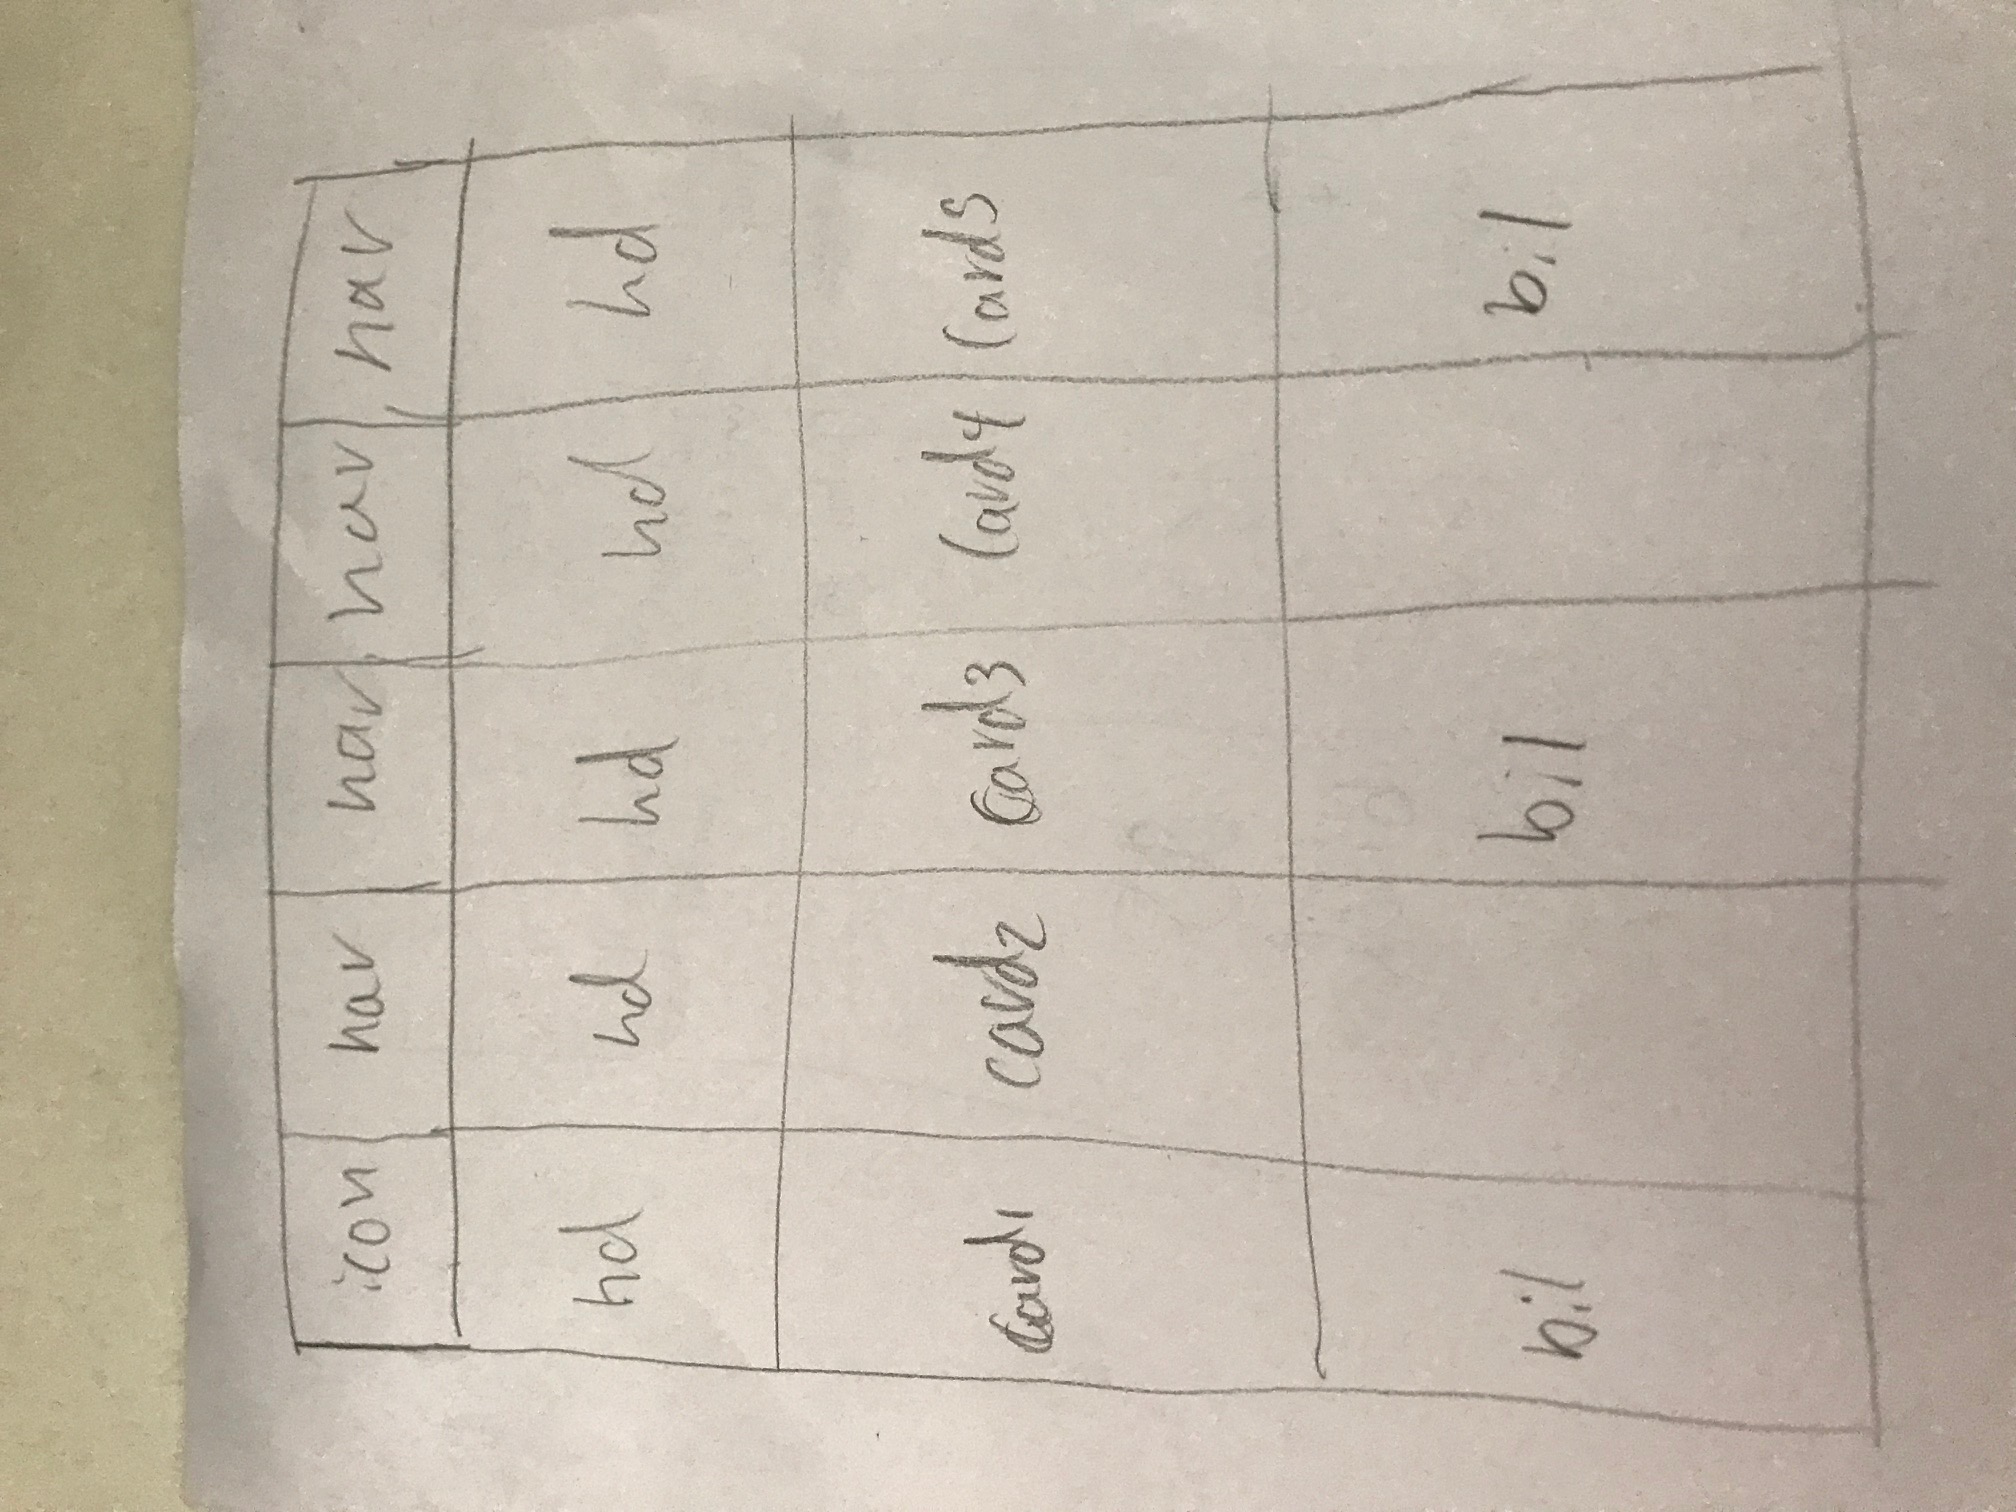 icon nav nav nav nav
hd hd hd hd hd
card1 card2 card3 card4 card5
bil bil bil